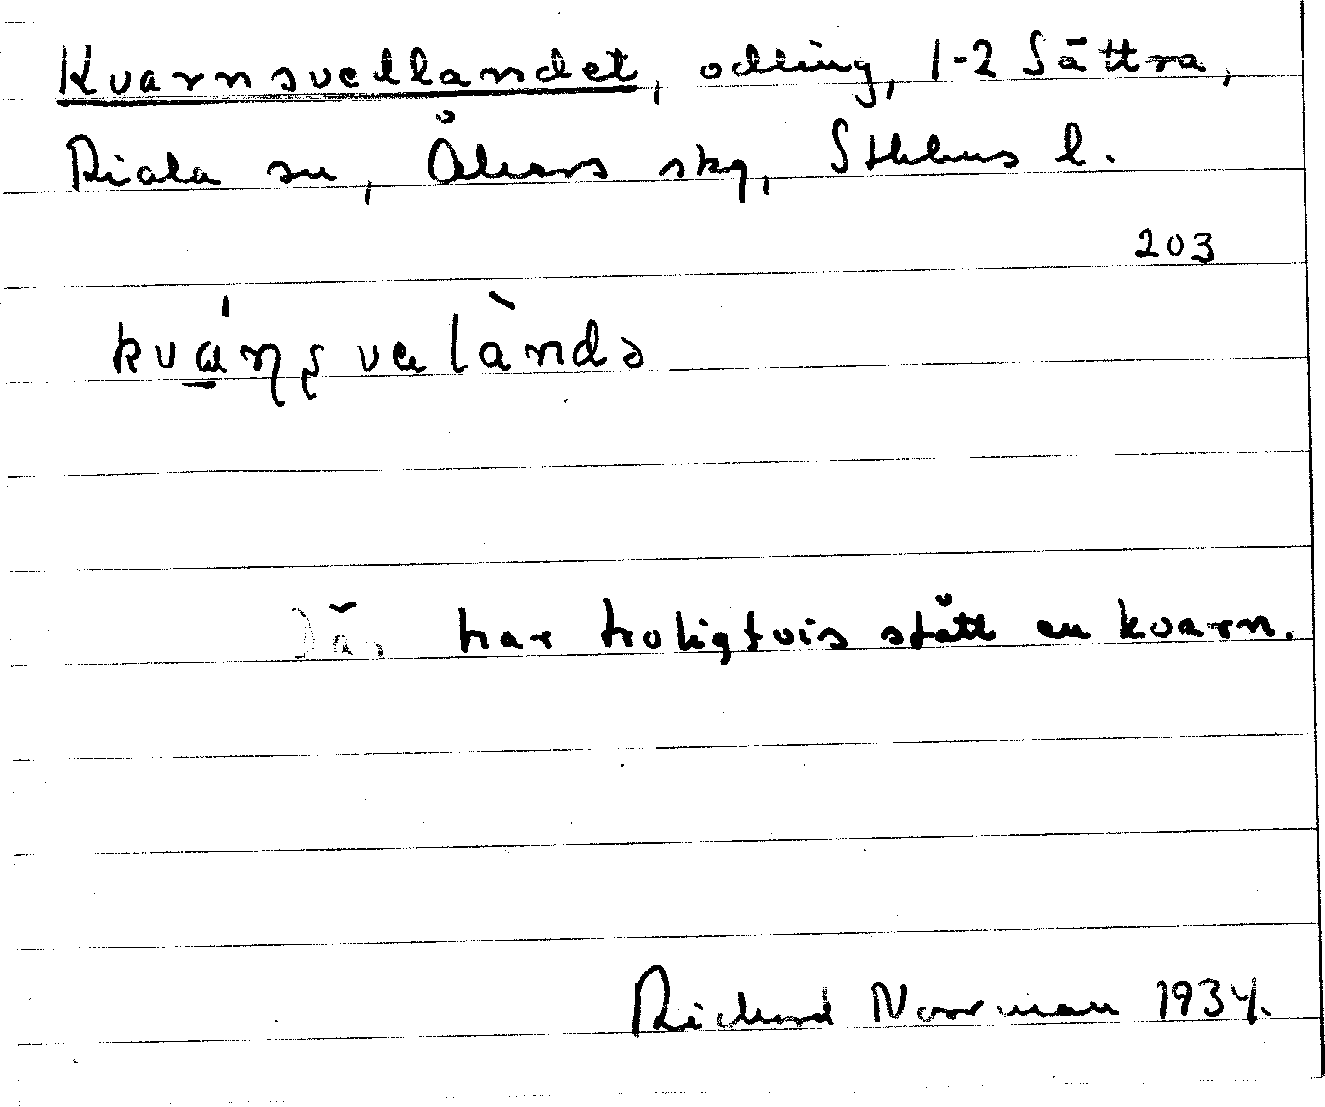 Kvarnsvedlandet, odling, 1-2 Sättra,
Riala sn, Åkers skg, Sthlms l.
203
kváṇṣvelàndə
Där har troligtvis stått en kvarn.
Richard Norrman 1934.